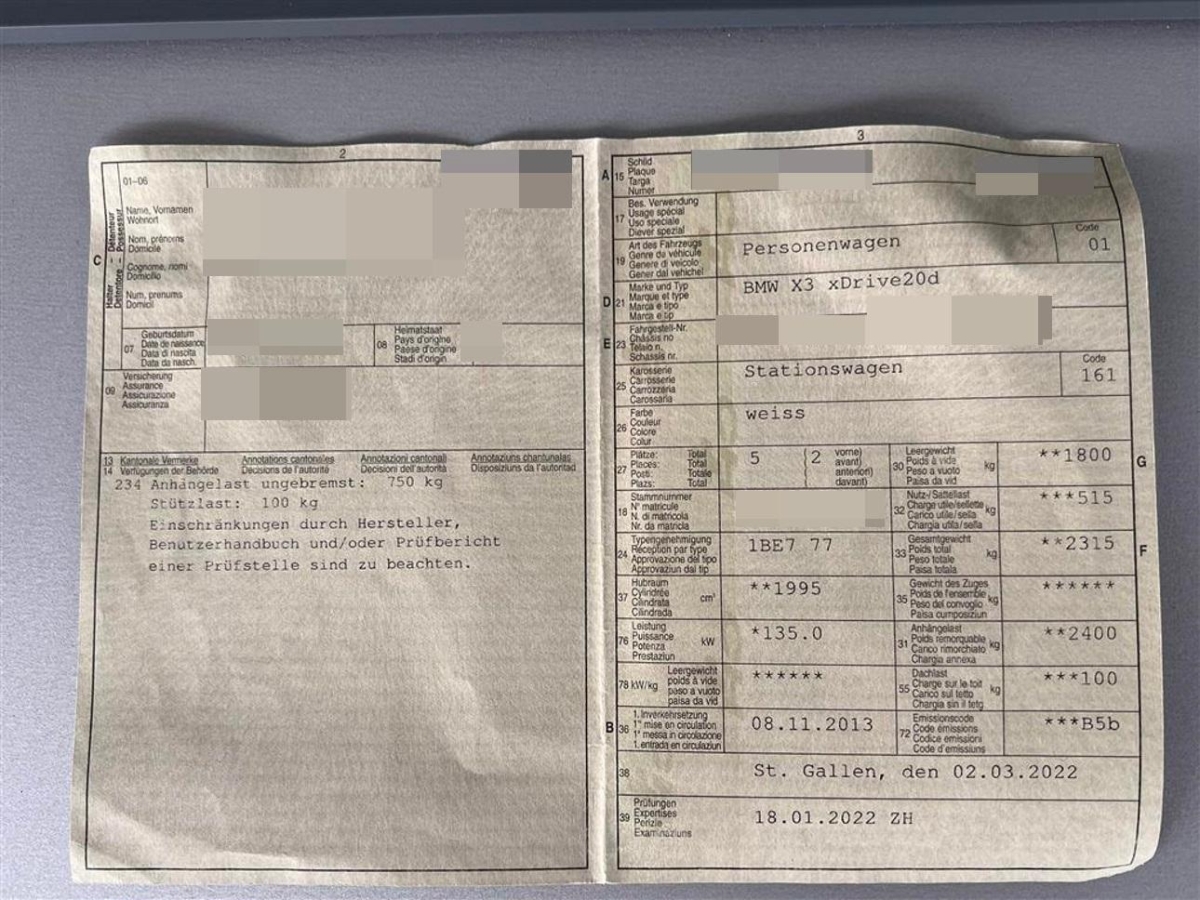 2
01-06
Halter - Détenteur
Detentore - Possessur
C
Name, Vornamen
Wohnort
Nom, prénoms
Domicile
Cognome, nomi
Domicilio
Num, prenums
Domicil
07
Geburtsdatum
Date de naissance
Data di nascita
Data da nasch.
08
Heimatstaat
Pays d'origine
Paese d'origine
Stadi d'origin
09
Versicherung
Assurance
Assicurazione
Assicuranza
13 Kantonale Vermerke Annotations cantonales Annotazioni cantonali Annotaziuns chantunalas
14 Verfügungen der Behörde Décisions de l'autorité Decisioni dell'autorità Disposiziuns da l'autoritad
234 Anhängelast ungebremst: 750 kg
Stützlast: 100 kg
Einschränkungen durch Hersteller,
Benutzerhandbuch und/oder Prüfbericht
einer Prüfstelle sind zu beachten.
3
A 15
Schild
Plaque
Targa
Numer
17
Bes. Verwendung
Usage spécial
Uso speciale
Diever spezial
19
Art des Fahrzeugs
Genre du véhicule
Genere di veicolo
Gener dal vehichel
Personenwagen
Code
01
D 21
Marke und Typ
Marque et type
Marca e tipo
Marca e tip
BMW X3 xDrive20d
E 23
Fahrgestell-Nr.
Châssis no
Telaio n.
Schassis nr.
25
Karosserie
Carrosserie
Carrozzeria
Carossaria
Stationswagen
Code
161
26
Farbe
Couleur
Colore
Colur
weiss
27
Plätze: Total
Places: Total
Posti: Totale
Plazs: Total
5 (2
vorne)
avant)
anteriori)
davant)
30
Leergewicht
Poids à vide
Peso a vuoto
Paisa da vid
kg
**1800
G
18
Stammnummer
N° matricule
N. di matricola
Nr. da matricla
32
Nutz-/Sattellast
Charge utile/sellette
Carico utile/sella
Chargia utila/sella
kg
***515
24
Typengenehmigung
Réception par type
Approvazione del tipo
Approvaziun dal tip
1BE7 77
33
Gesamtgewicht
Poids total
Peso totale
Paisa totala
kg
**2315
F
37
Hubraum
Cylindrée
Cilindrata
Cilindrada
cm³
**1995
35
Gewicht des Zuges
Poids de l'ensemble
Peso del convoglio
Paisa cumposiziun
kg
******
76
Leistung
Puissance
Potenza
Prestaziun
kW
*135.0
31
Anhängelast
Poids remorquable
Carico rimorchiato
Chargia annexa
kg
**2400
78 kW/kg
Leergewicht
poids à vide
peso a vuoto
paisa da vid
******
55
Dachlast
Charge sur le toit
Carico sul tetto
Chargia sin il tetg
kg
***100
B 36
1. Inverkehrsetzung
1re mise en circulation
1a messa in circolazione
1. entrada en circulaziun
08.11.2013
72
Emissionscode
Code émissions
Codice emissioni
Code d'emissiuns
***B5b
38
St. Gallen, den 02.03.2022
39
Prüfungen
Expertises
Perizie
Examinaziuns
18.01.2022 ZH